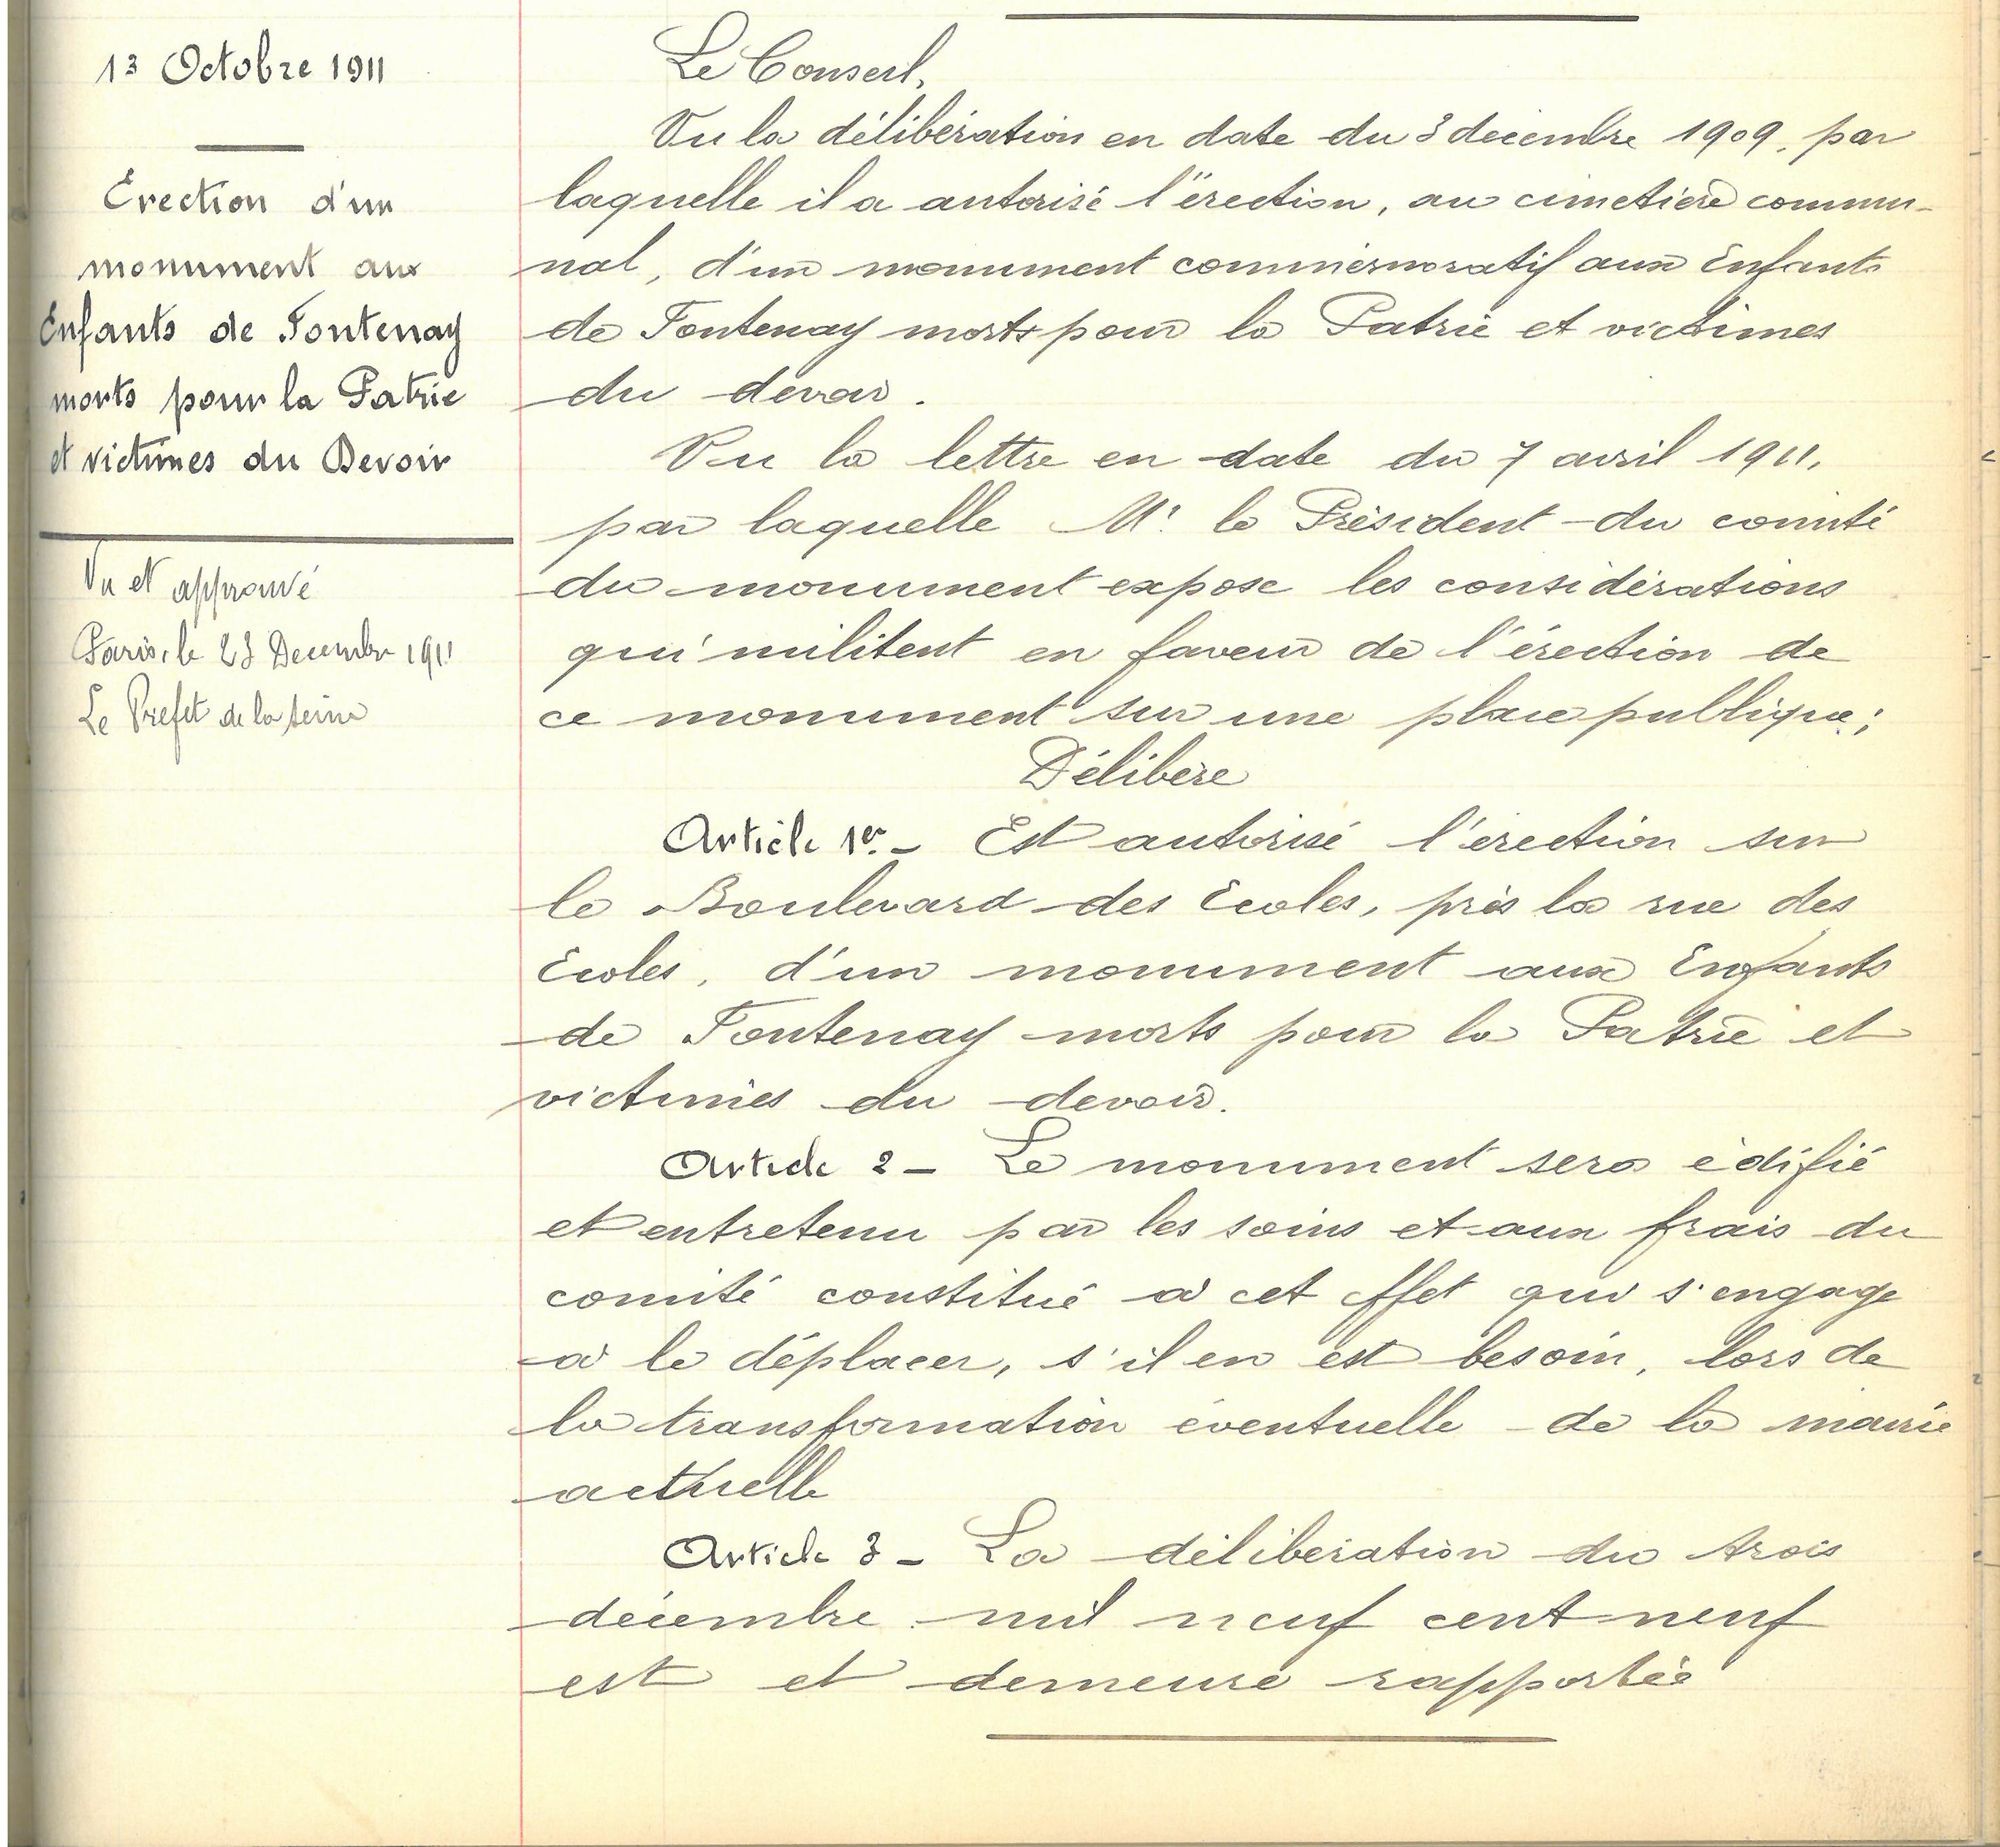 13 Octobre 1911
Erection d'un
monument aux
Enfants de Fontenay
morts pour la Patrie
et victimes du Devoir
Vu et approuvé
Paris, le 23 Decembre 1911
Le Prefet de la Seine
Le Conseil,
Vu la délibération en date du 3 décembre 1909, par
laquelle il a autorisé l'érection, au cimetière commu-
nal, d'un monument commémoratif aux Enfants
de Fontenay morts pour la Patrie et victimes
du devoir.
Vu la lettre en date du 7 avril 1911,
par laquelle Mr. le Président du comité
du monument expose les considérations
qui militent en faveur de l'érection de
ce monument sur une place publique;
Délibère
Article 1er. - Est autorisé l'érection sur
le Boulevard des Ecoles, près la rue des
Ecoles, d'un monument aux Enfants
de Fontenay morts pour la Patrie et
victimes du devoir.
Article 2 - Le monument sera édifié
et entretenu par les soins et aux frais du
comité constitué à cet effet qui s'engage
à le déplacer, s'il en est besoin, lors de
la transformation éventuelle de la mairie
actuelle
Article 3 - La délibération du trois
décembre mil neuf cent neuf
est et demeure rapportée